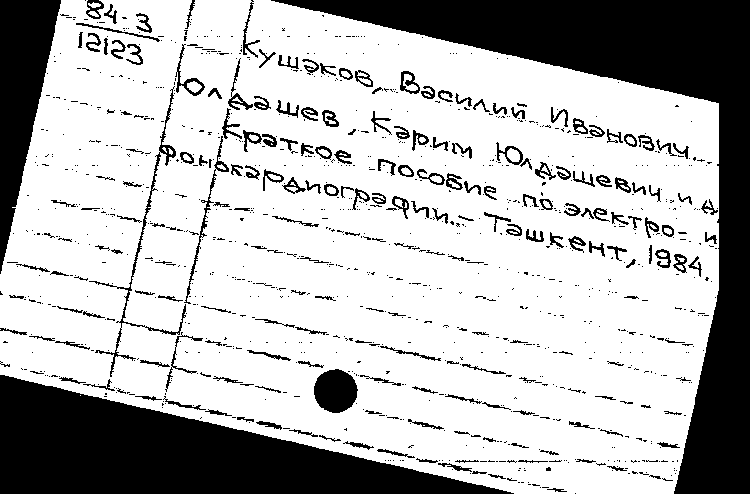 84-3
12123
Кушаков, Василий Иванович.
Юлдашев, Карим Юлдашевич и д
Краткое пособие по электро- и
фонокардиографии.- Ташкент, 1984.